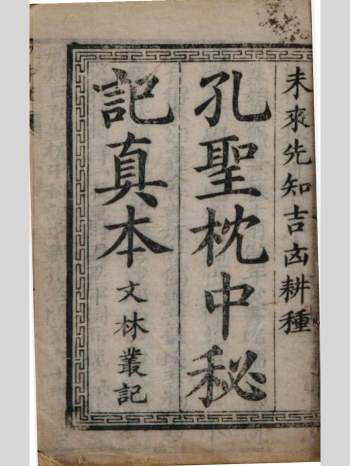 未來先知吉凶耕種
孔聖枕中秘
記真本
文林叢記